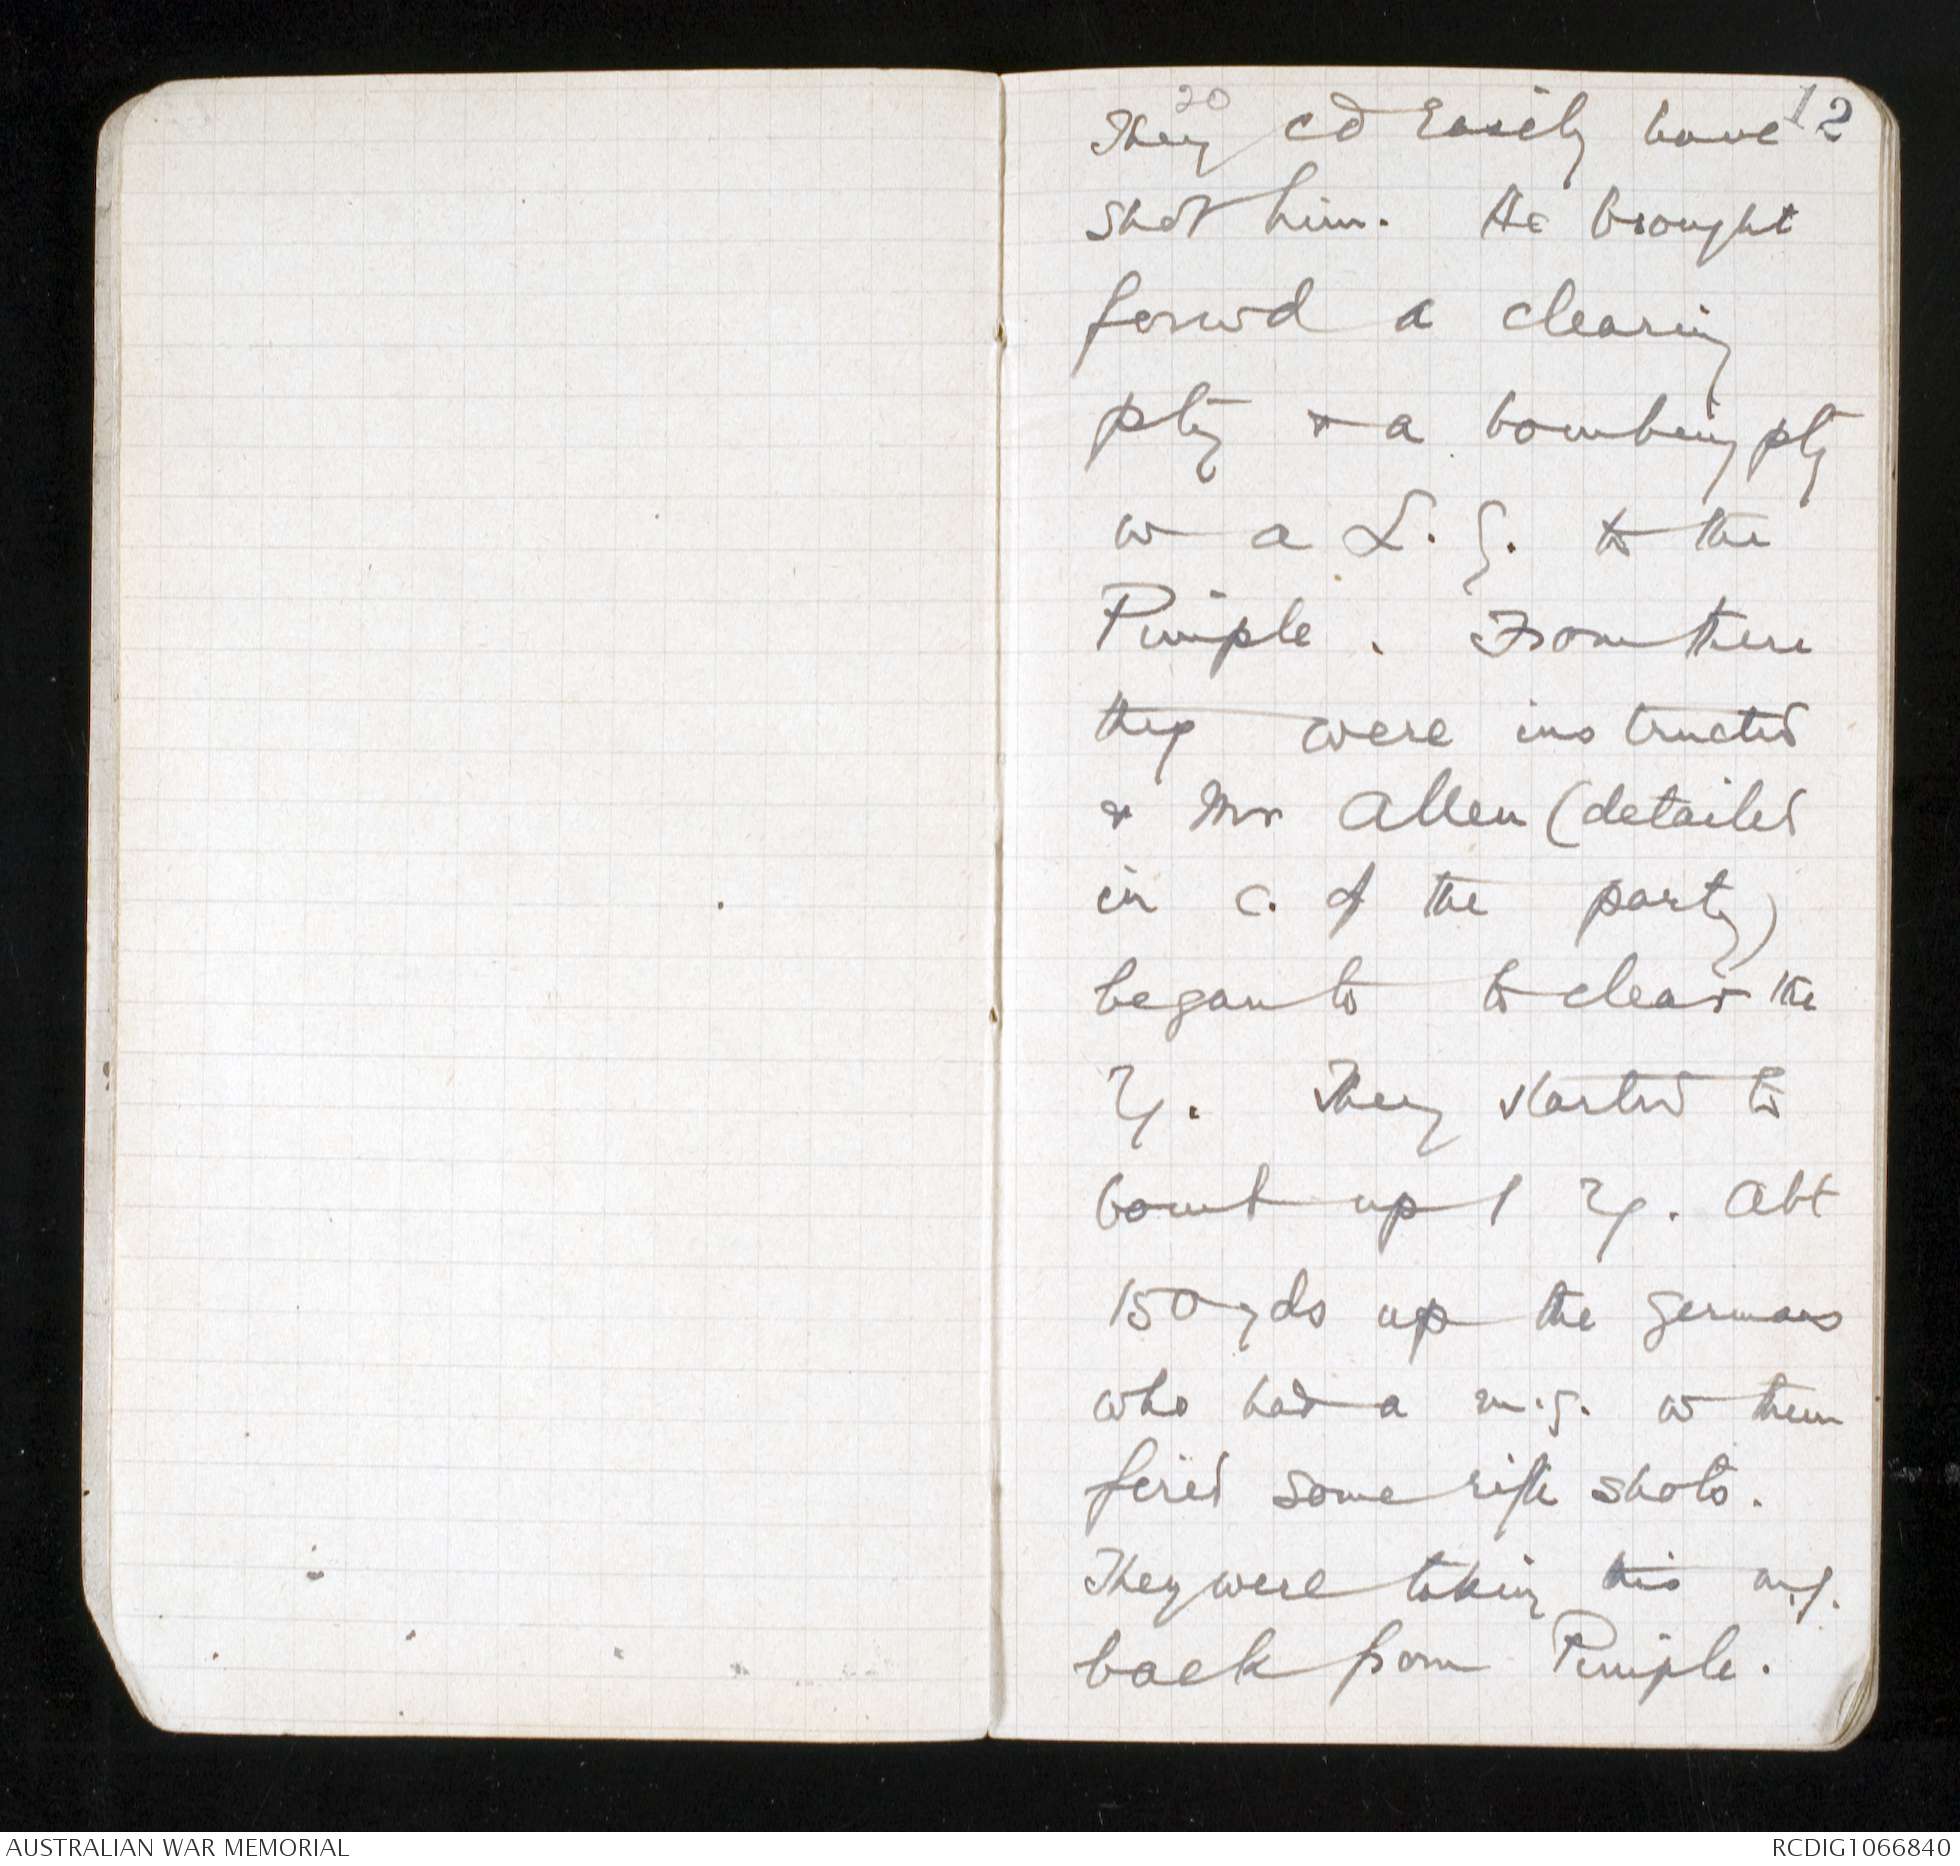 20
12
They cd easily have
shot him. He brought
forwd a clearing
pty & a bombing pty
w a L.G. to the
Pimple. From there
they were instructed
& Mr Allen (detailed
in c. of the party)
began to to clear the
Y. They started to
bomb up / Y. Abt
150 yds up the Germans
who had a m.g. w them
fired some rifle shots.
They were taking this m.g.
back from Pimple.
AUSTRALIAN WAR MEMORIAL
RCDIG1066840